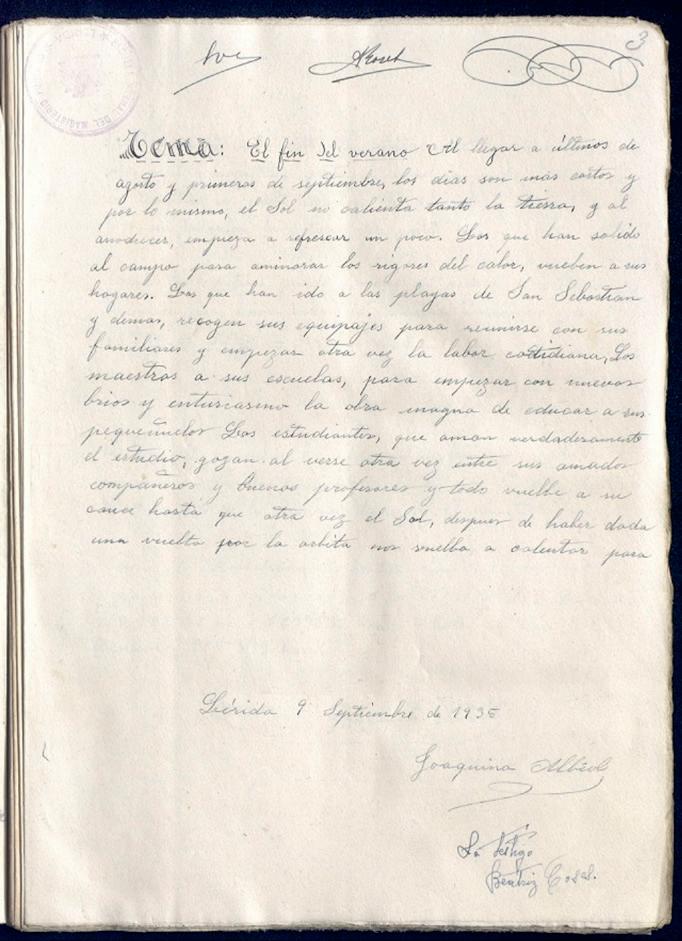 3
Tema: El fin del verano Al llegar a últimos de
agosto y primeros de septiembre, los días son más cortos y
por lo mismo, el Sol no calienta tanto la tierra, y al
anochecer, empieza a refrescar un poco. Los que han salido
al campo para aminorar los rigores del calor, vuelven a sus
hogares. Los que han ido a las playas de San Sebastian
y demas, recogen sus equipajes para reunirse con sus
familiares y empezar otra vez la labor cotidiana, Los
maestros a sus escuelas, para empezar con nuevos
brios y entusiasmo la obra magna de educar a sus
pequeñuelos Los estudiantes, que aman verdaderamente
el estudio, gozan al verse otra vez entre sus amados
compañeros y buenos profesores y todo vuelbe a su
cauce hasta que otra vez el Sol, despues de haber dada
una vuelta por la orbita nos vuelba a calentar para
Lérida 9 Septiembre de 1935
Joaquina
La testigo
Beatriz